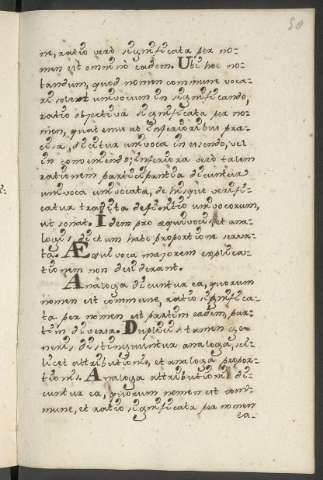 50
ne, ratio verò significata per no-
men sit omninò eadem. Ubi hoc no-
tandum, quod nomen commune voca-
ri solent univocum in significando,
ratio objectiva significata per no-
men, quat enus ab inferioribus præ-
cisa, dicitur univoca in essendo, vel
in conveniendo; inferiora verò talem
rationem participantia dicuntur
univoca univocata, de hisque verifi-
catur tradita definitio univocorum,
ut sonat. Idem pro æquivocis, et ana-
logis dictum habe proportione serva-
ta. Æquivoca majorem explica-
tionem non desiderant.
Analoga dicuntur ea, quorum
nomen est commune, ratio significa-
ta per nomen est partim eadem, par-
tim diversa. Duplicis tamen ge-
neris distinguuntur analoga, sci-
licet attributionis, et analoga propor-
tionis. Analoga attributionis di-
cuntur ea, quorum nomen est com-
mune, et ratio significata per nomen
ea-